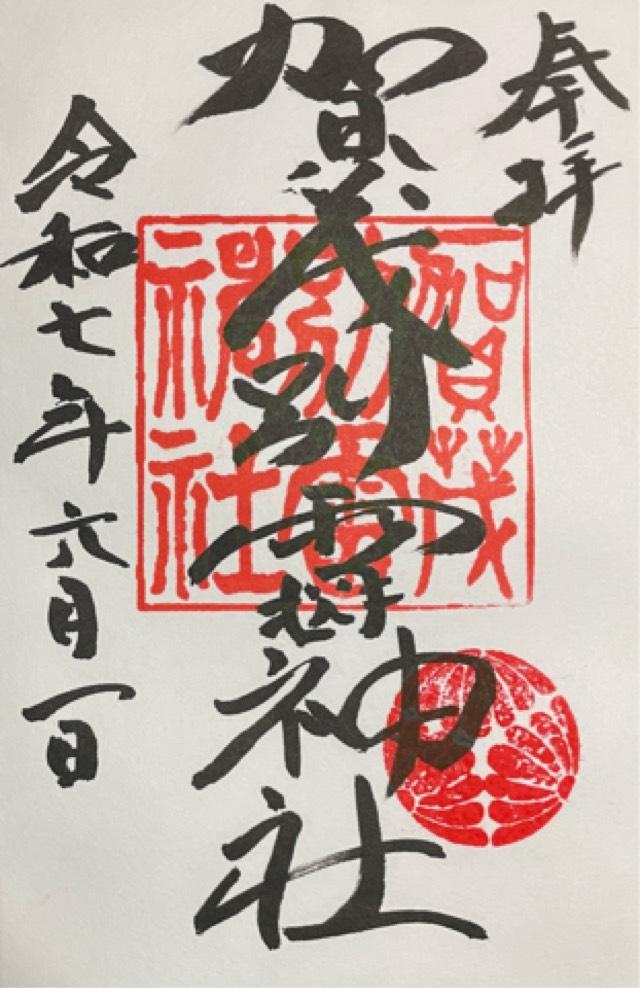 奉拝
賀茂別雷神社
賀茂
別雷
神社
令和七年六月一日